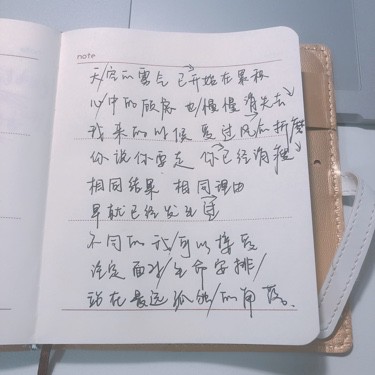 note
天/空的雾气 已开始在累积
心中的顾虑 也/慢慢 消失去
我来的时候 受过风的折磨
你说你要走 你已经消瘦
相同结果 相同理由
早就已经发生过
不同的我/可以接受
注定面对/生命安排/
站在最远孤独/的角落。